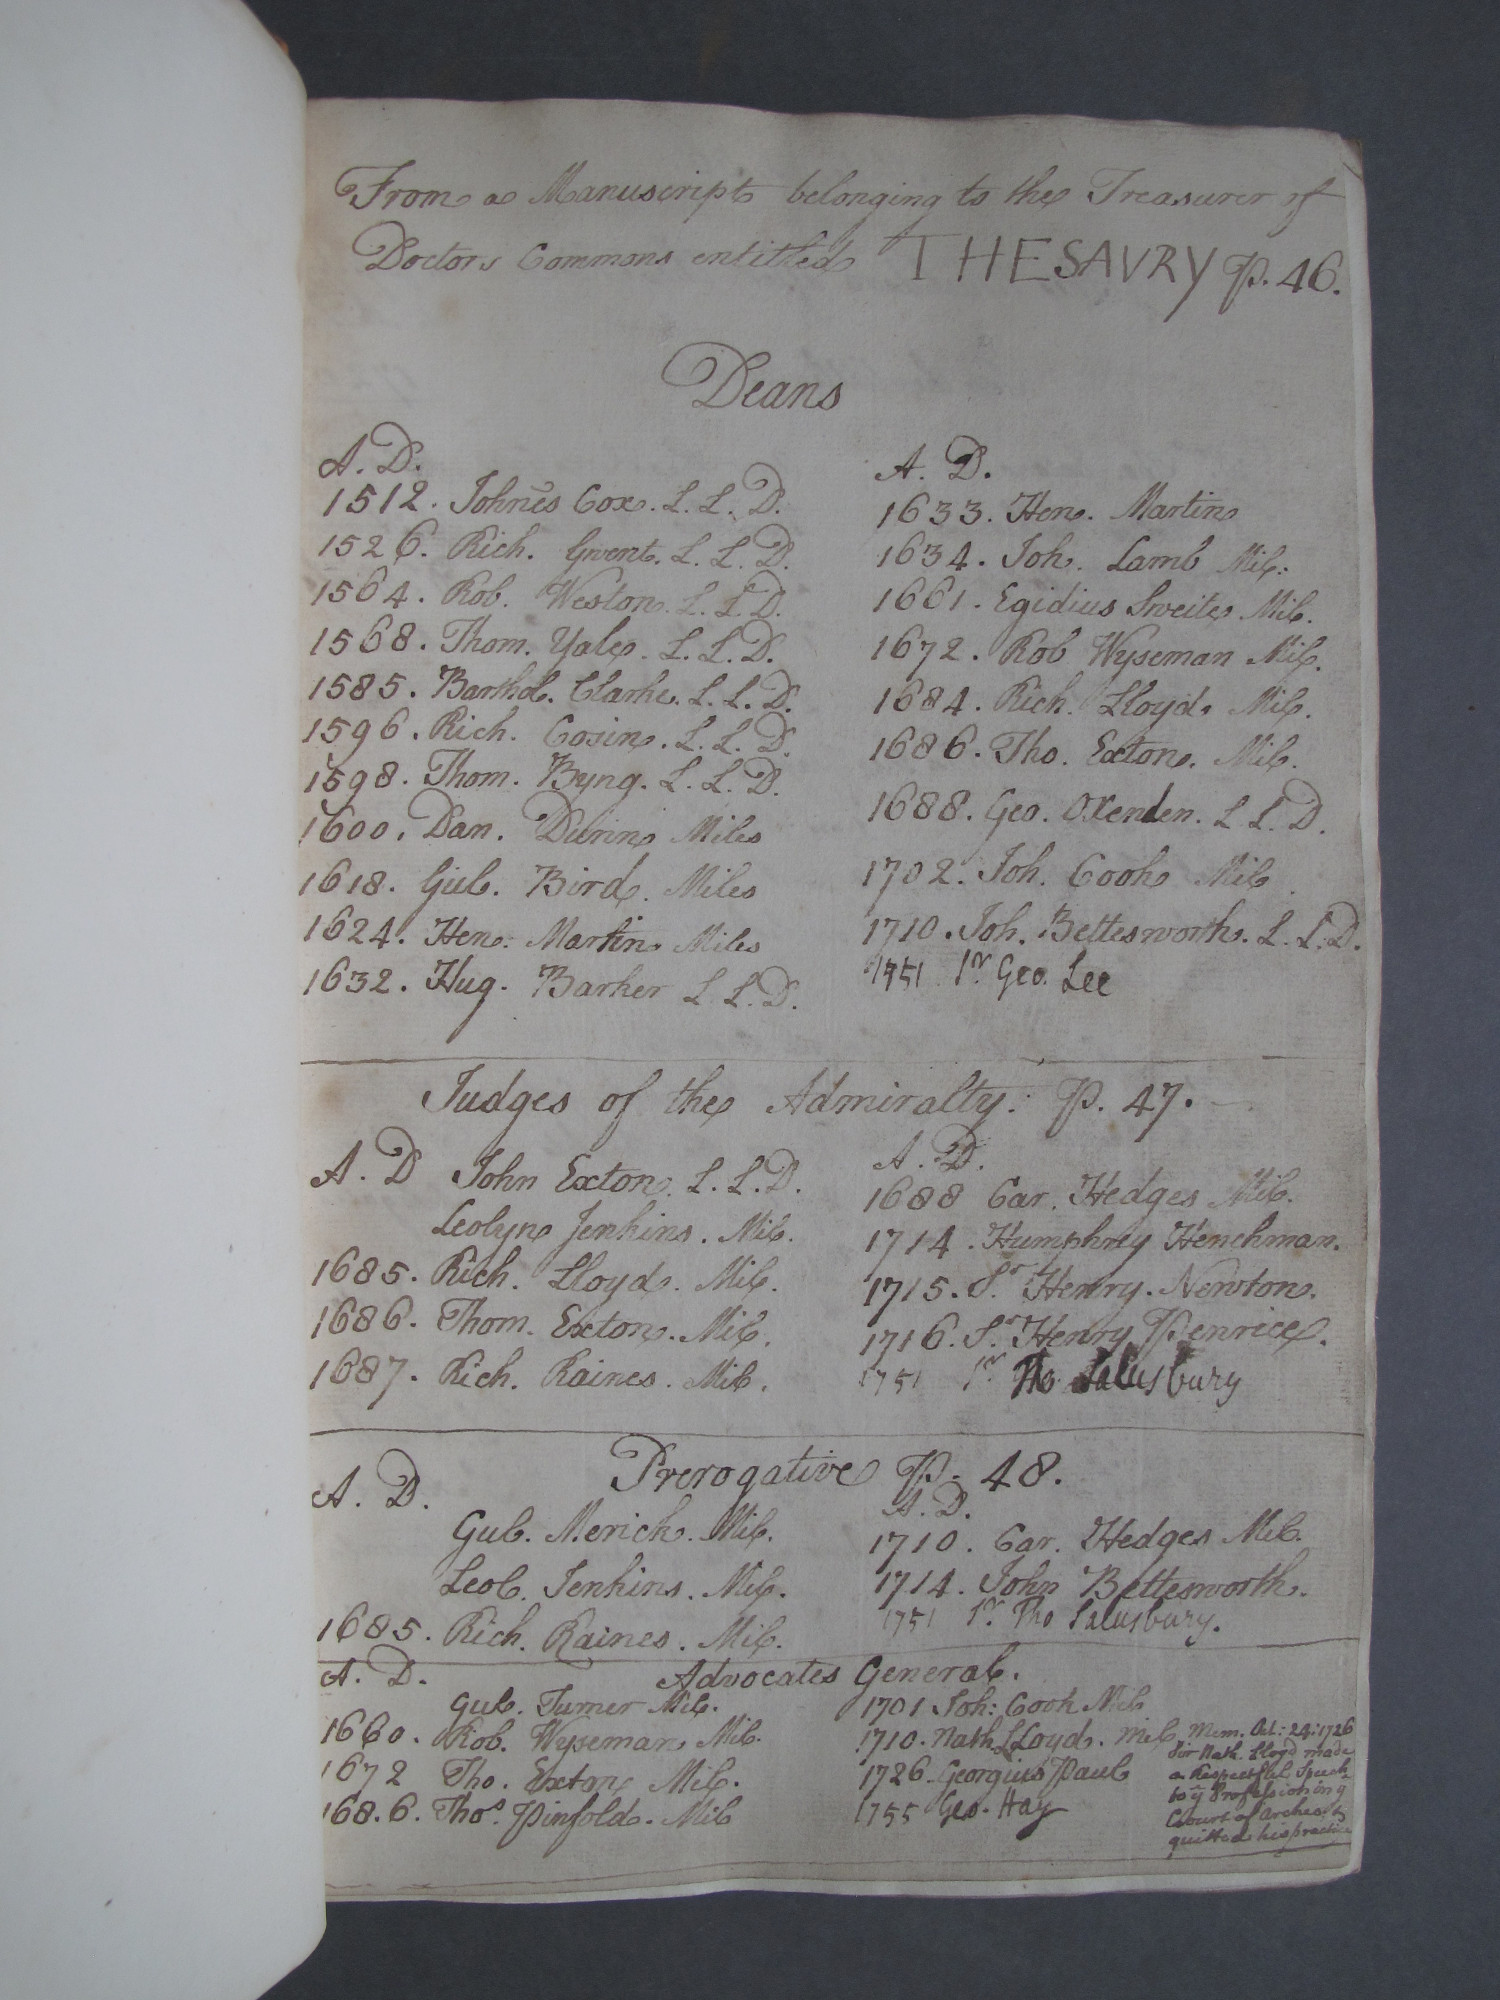 From a Manuscript belonging to the Treasurer of
Doctors Commons entitled THESAVRY p. 46.
Deans
A. D.
1512. Johnēs Cox. L. L. D.
1526. Rich. Gwent. L. L. D.
1564. Rob. Weston. L. L. D.
1568. Thom. Yale. L. L. D.
1585. Barthol. Clarke. L. L. D.
1596. Rich. Cosin. L. L. D.
1598. Thom. Byng. L. L. D.
1600. Dan. Dunn Miles
1618. Gul. Bird. Miles
1624. Hen. Martin. Miles
1632. Hug. Barker L. L. D.
A. D.
1633. Hen. Martin
1634. Joh. Lamb Mil:
1661. Egidius Sweite Mil.
1672. Rob Wyseman Mil.
1684. Rich. Lloyd. Mil.
1686. Tho. Exton. Mil.
1688. Geo. OXenden. L. L. D.
1702. Joh. Cook Mil.
1710. Joh. Bettesworth. L. L. D.
1751 Sr. Geo. Lee
Judges of the Admiralty. p. 47.
A. D John Exton. L. L. D.
Leolyn Jenkins. Mil.
1685. Rich. Lloyd. Mil.
1686. Thom. Exton. Mil.
1687. Rich. Raines. Mil.
A. D.
1688 Car. Hedges Mil.
1714. Humphrey Henchman.
1715. Sr. Henry. Newton.
1716. Sr. Henry Penrice.
1751 Sr. Tho. Salusbury
Prerogative p. 48.
A. D.
Gul. Merick. Mil.
Leol. Jenkins. Mil.
1685. Rich. Raines. Mil.
A. D.
1710. Car. Hedges Mil.
1714. John Bettesworth.
1751 Sr. Tho Salusbury.
Advocates General.
A. D.
Gul. Turner Mil.
1660. Rob. Wyseman Mil.
1672 Tho. Exton Mil.
168.6. Thos. Pinfold. Mil
1701 Joh: Cook Mil
1710. Nath. LLoyd. Mil
1726. Georgius Paul
1755 Geo. Hay
Mem. Oct: 24: 1726
Sir Nath. Lloyd made
a Respectful Speech
to ye Profession in ye
Court of Arches, &
quitted his practice